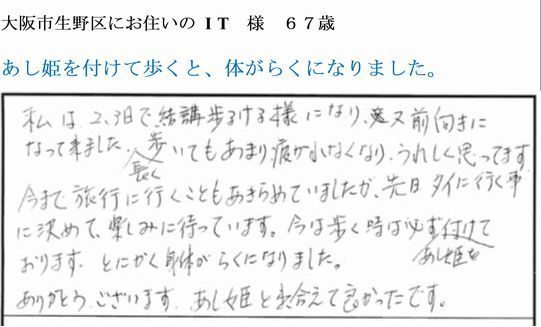 大阪市生野区にお住いの IT 様 67歳
あし姫を付けて歩くと、体がらくになりました。
私は 2、3日で結講歩るける様になり、又前向きに
なって来ました。長く歩いてもあまり疲れなくなり、うれしく思ってます
今まで旅行に行くこともあきらめていましたが、先日タイに行く事
に決めて、楽しみに待っています。今は歩く時は必ずあし姫を付けて
おります。とにかく身体がらくになりました。
ありがとうございます。あし姫と出会えて良かったです。